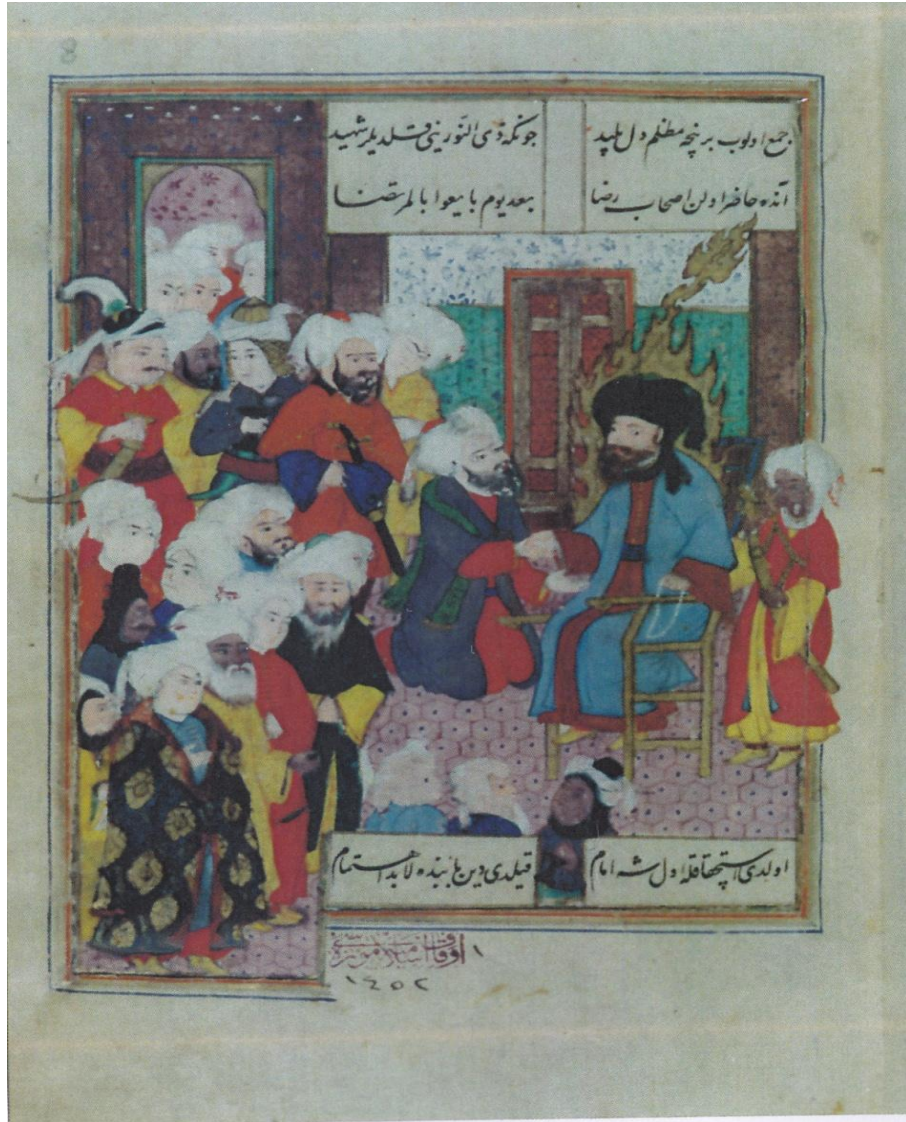 8
جمع اولوب بر نچه مظلم دل پلید چونکه ذی النّورینی قلدیلر شهید
آنده حاضر اولن اصحاب رضا بعد یوم بایعوا بالمرتضا
اولدی استحقاقله اول شه امام قیلدی دین بابنده لابد اهتمام
اوقاف اسلامیه موزه سی